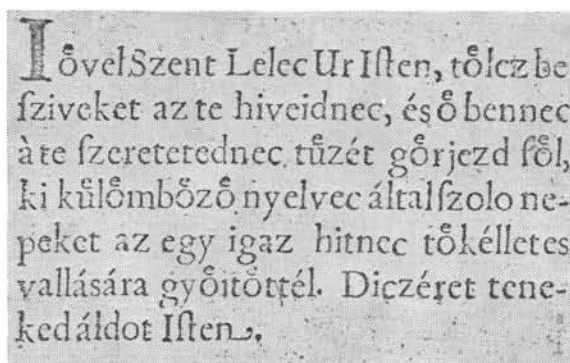 Iövel Szent Lelec Ur Iſten, tölcz be
ſziveket az te hiveidnec, és ö bennec
à te ſzeretetednec tüzét görjezd föl,
ki külömbözö nyelvec által ſzolo ne-
peket az egy igaz hitnec tökélletes
vallására gyöitöttél. Diczéret tene-
ked áldot Iſten.